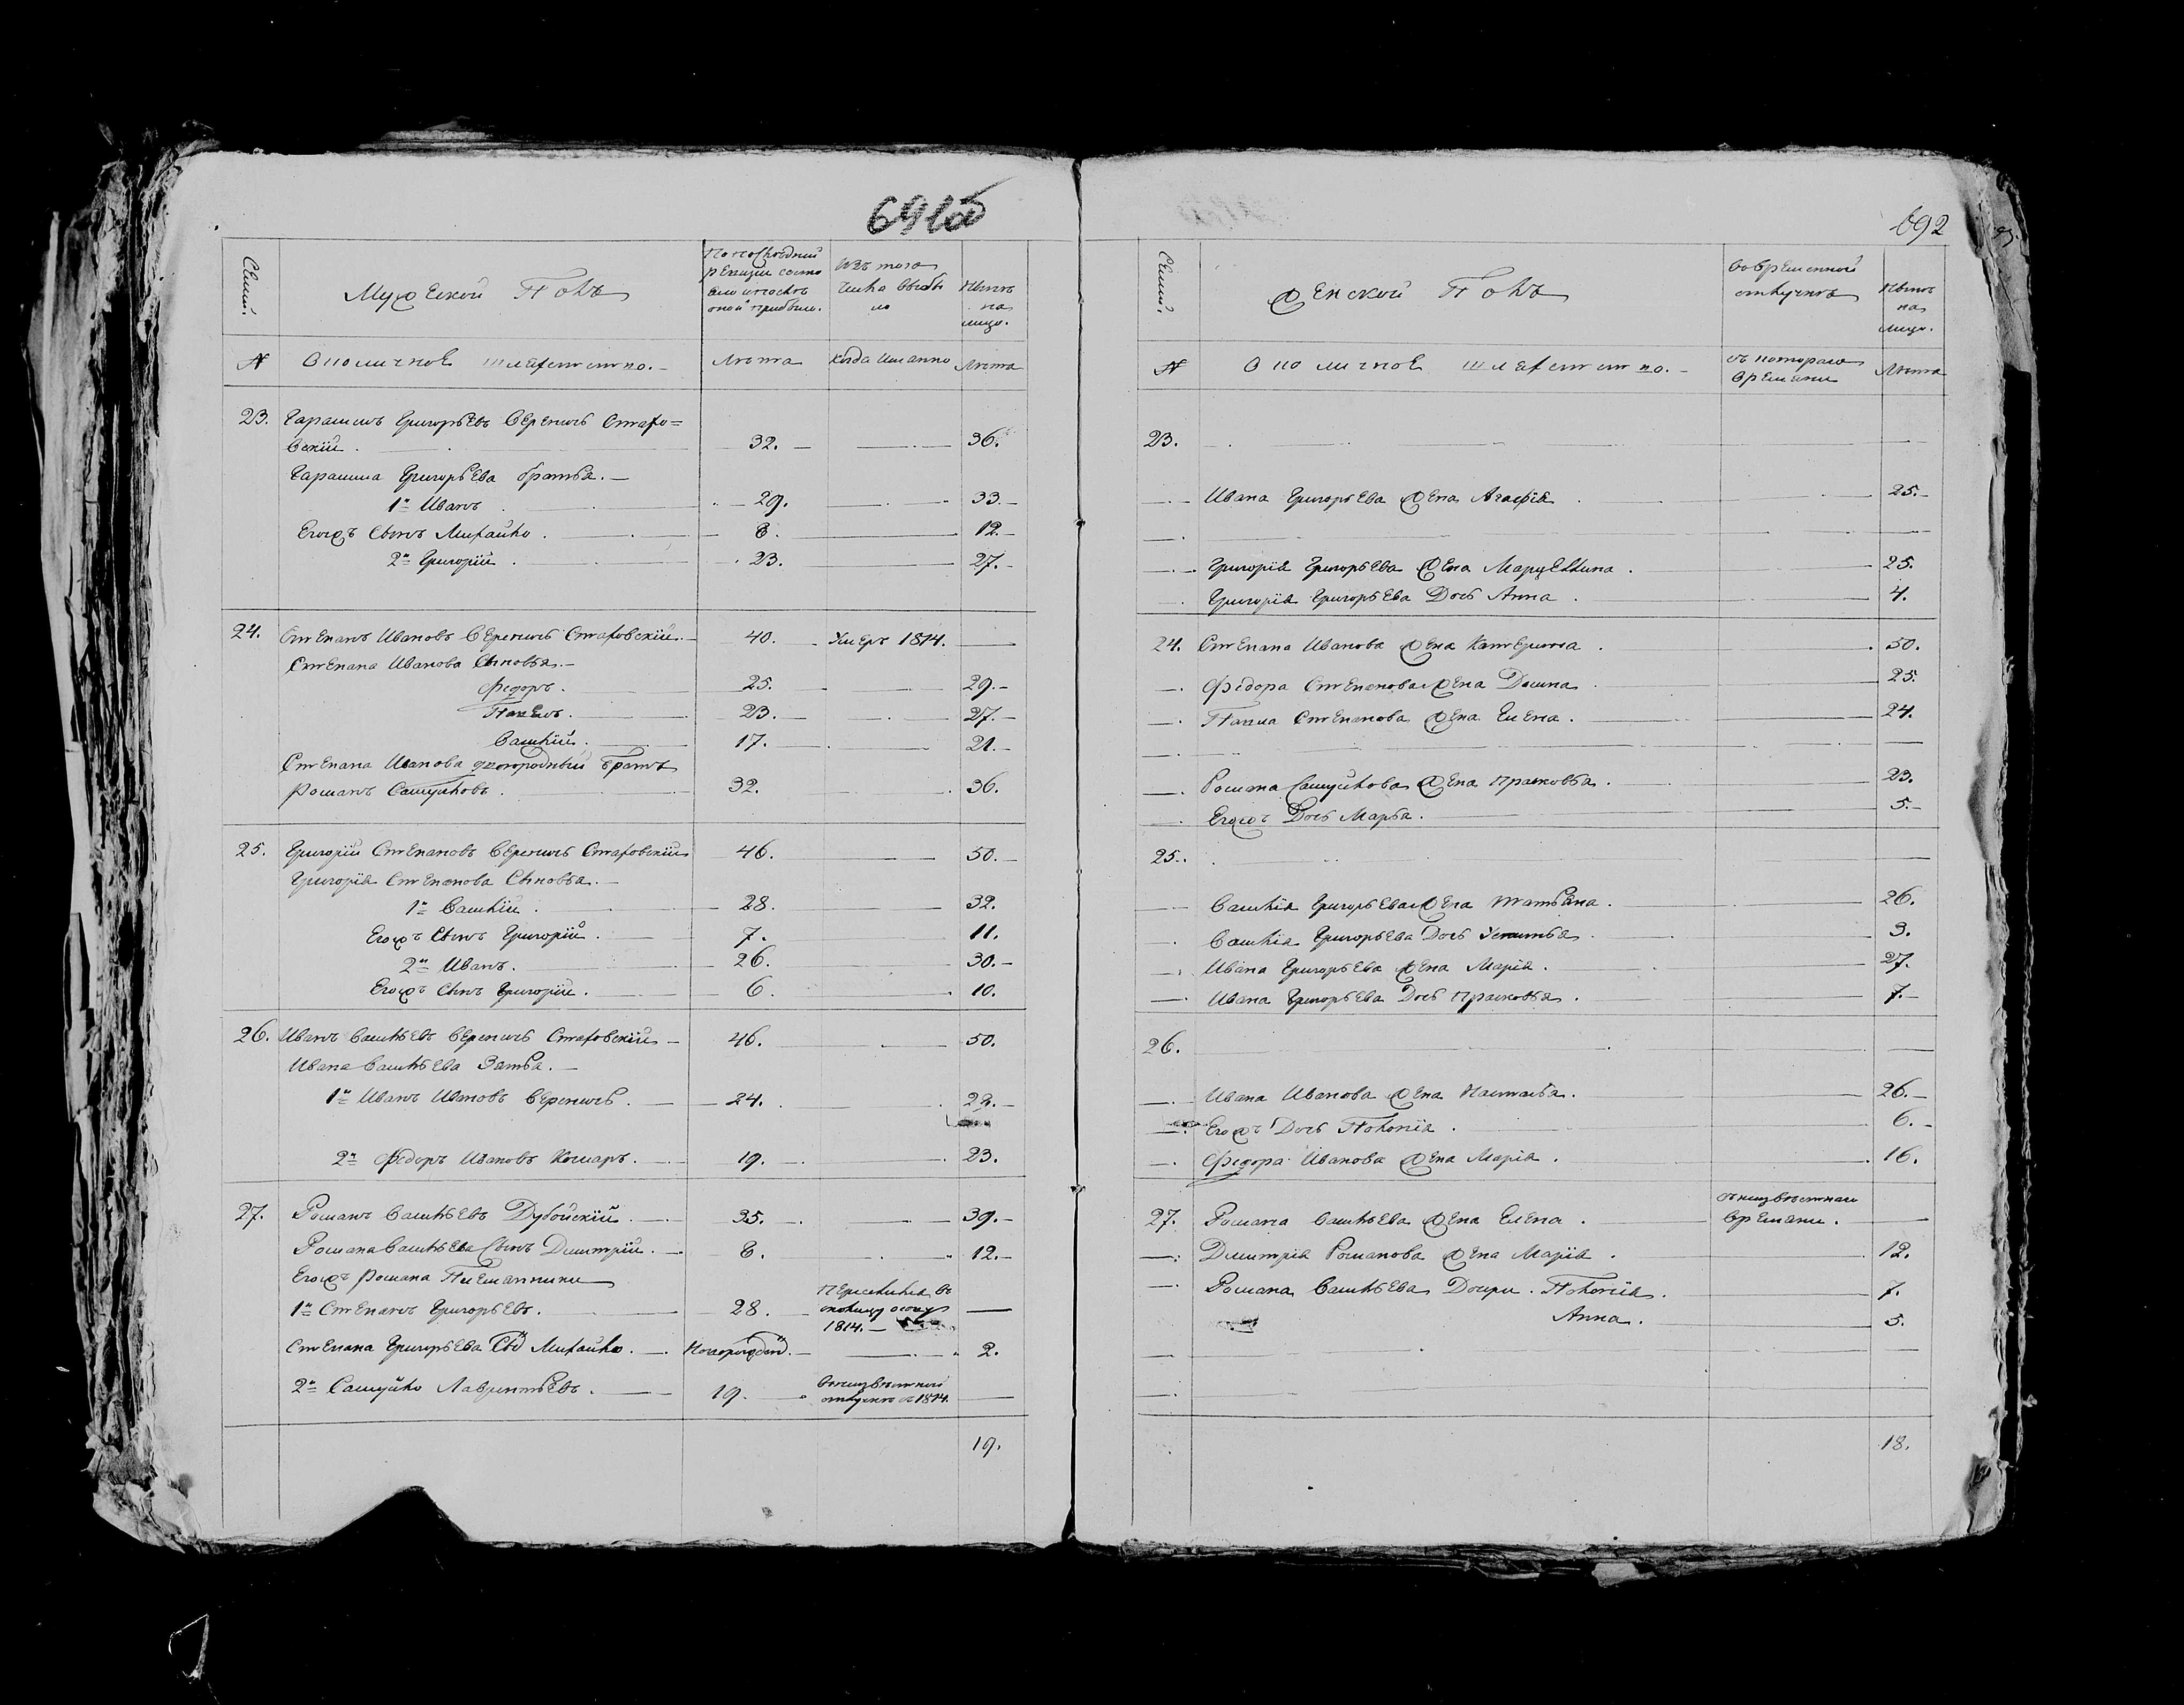 691об
Семьи.
Мужеской Полъ
По последней
ревизiи состо
яло и после
оной прибыло.
Изъ того
числа выбы
ло
Ныне
на
лицо.
№
Околичное шляхетство.
Лѣта
Когда именно
Лѣта
23. Гарасимъ Григорьевъ Вереничь Стахо=
вскiй. 32. 36.
Гарасима Григорьева братья.
1й Иванъ 29. 33.
Егожъ Сынъ Михайло. 8. 12.
2й Григорiй 23. 27.
24. Степанъ Ивановъ Вереничь Стаховскiй. 40. Умеръ 1814.
Степана Иванова Сыновья.
Федоръ. 25. 29.
Павелъ. 23. 27.
Василiй. 17. 21.
Степана Иванова двоюродный братъ
Романъ Самуйловъ. 32. 36.
25. Григорiй Степановъ Вереничь Стаховскiй 46. 50.
Григорiя Степанова Сыновья.
1й Василiй. 28. 32.
Егожъ Сынъ Григорiй. 7. 11.
2й Иванъ. 26. 30.
Егожъ Сынъ Григорiй. 6. 10.
26. Иванъ Васильевъ Вереничь Стаховскiй 46. 50.
Ивана Васильева Зятья.
1й Иванъ Ивановъ Вереничь. 24. 28.
2й Федоръ Ивановъ Комаръ. 19. 23.
27. Романъ Васильевъ Дубойскiй. 35. 39.
Романа Васильева Сынъ Дмитрiй. 8. 12.
Егожъ Романа Племянники
1й Степанъ Григорьевъ. 28.
1814.
Степана Григорьева Сынъ Михайло. Новорожден. 2.
2й Самуйло Лаврентьевъ. 19. въ неизвестной
отлучке с 1814.
19.
692
Семьи.
Женской Полъ
Во временной
отлучке
Ныне
на
лицо.
№
Околичное шляхетство.
съ котораго
времени
Лѣта
23.
Ивана Григорьева Жена Агафiя 25.
Григорiя Григорьева Жена Марцелина. 25.
Григорiя Григорьева Дочь Анна 4.
24. Степана Иванова Жена Катерина. 50.
Федора Степанова Жена Домна 25.
Павла Степанова Жена Елена. 24.
Романа Самуйлова Жена Прасковья. 23.
Егожъ Дочь Марья. 5.
25.
Василiя Григорьева Жена Татьяна. 26.
Василiя Григорьева Дочь Устинья 3.
Ивана Григорьева Жена Марiя. 27.
Ивана Григорьева Дочь Прасковья. 7.
26.
Ивана Иванова Жена Настасья. 26.
Егожъ Дочь Полонiя. 6.
Федора Иванова Жена Марiя. 16.
27. Романа Васильева Жена Елена. съ неизвестнаго
времени.
Дмитрiя Романова Жена Марiя. 12.
Романа Васильева Дочери. Полонiя. 7.
Анна. 5.
18.